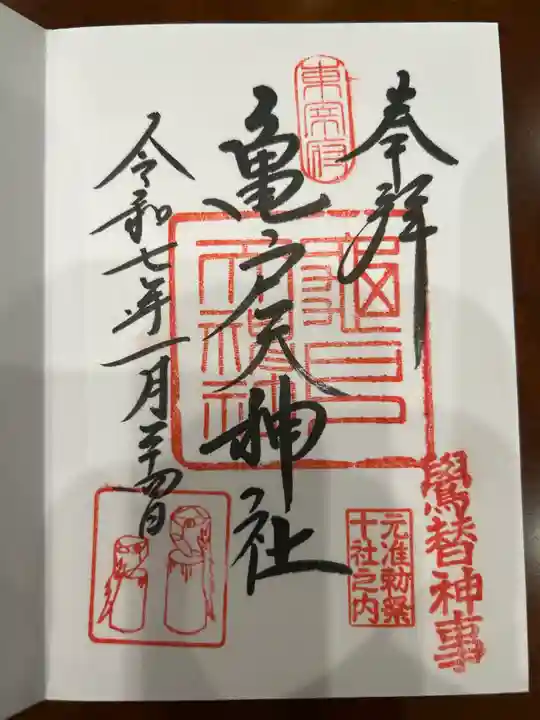 奉拝
東宰府
亀戸天神社
令和七年一月二十四日
元准勅祭
十社之内
鷽替神事